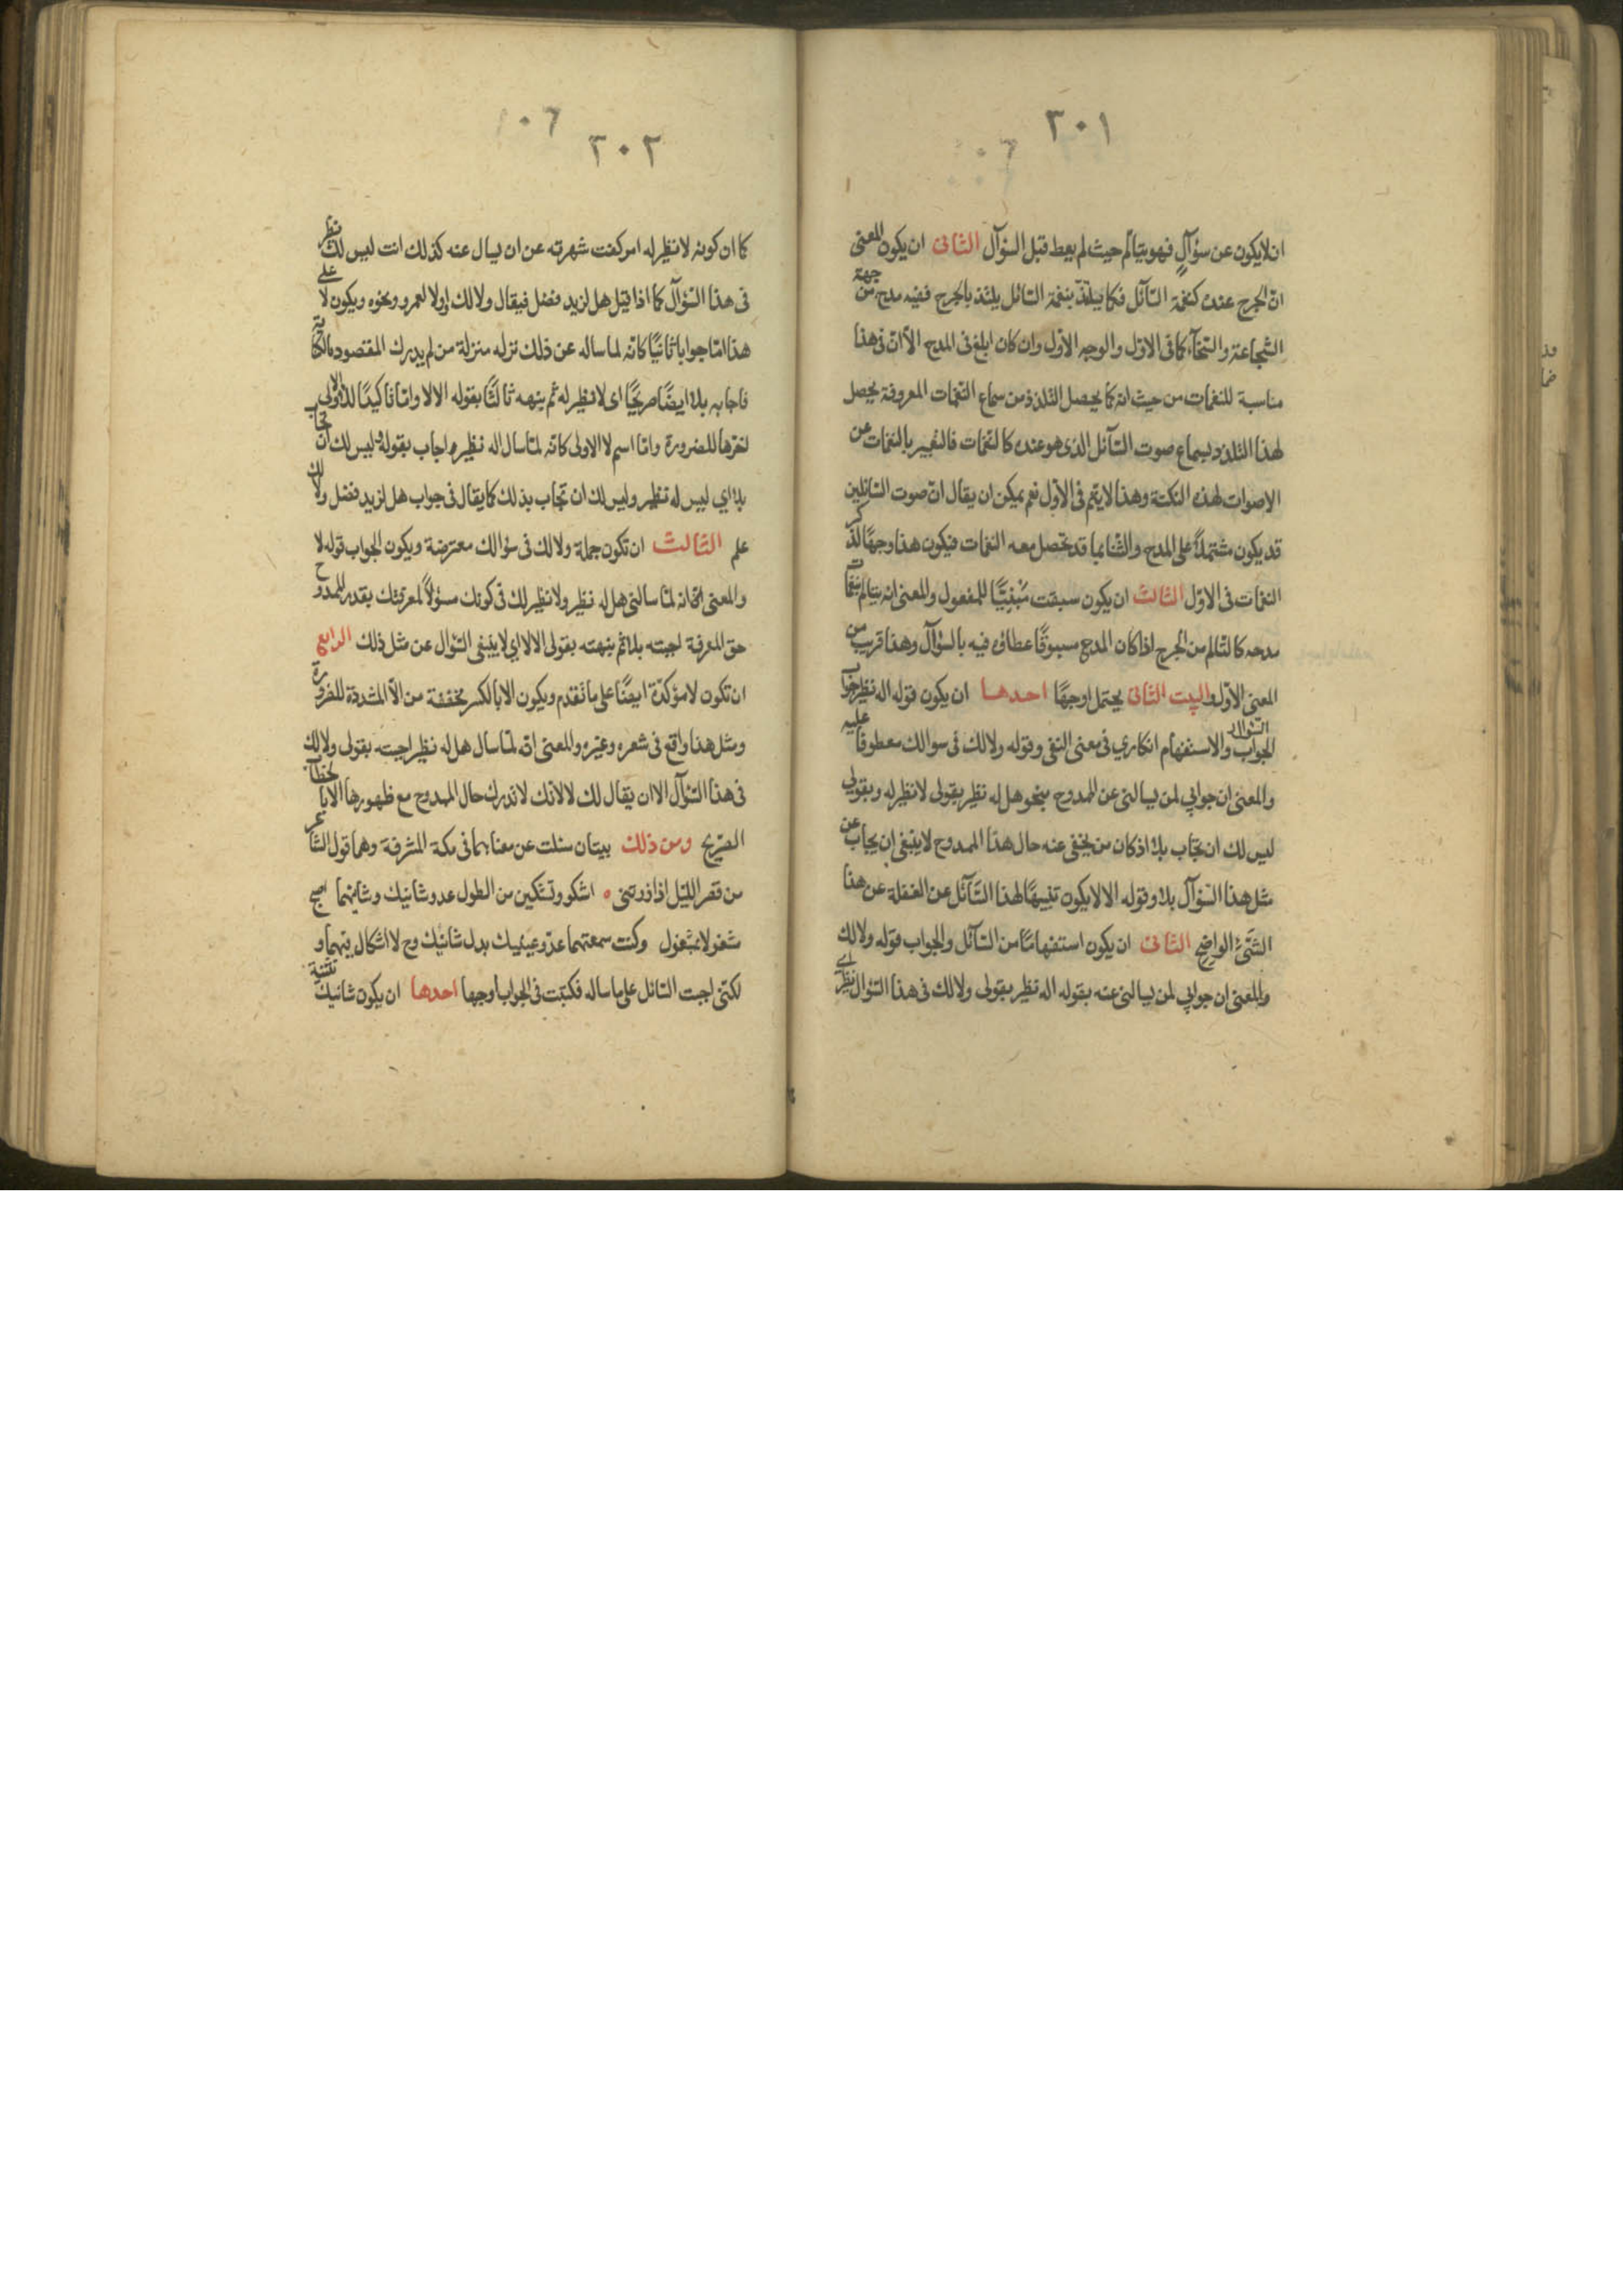 ٣٠١
ان لا يكون عن سؤالٍ فهو يتالم حيث لم يعط قبل السؤال الثانى ان يكون المعنى
ان الجرح عنده كنغمة السآئل فكما يتلذذ بنغمة السائل يلتذ بالجرح ففيه مدح من جهة
الشجاعة والسخآء كما فى الاول والوجه الاول وان كان ابلغ فى المدح الا ان فى هذا
مناسبة للنغمات من حيث انه كما يحصل التلذذ من سماع النغمات المعروفة يحصل
لهذا التلذذ بسماع صوت السآئل الذى هو عنده كالنغمات فالتعبير بالنغمات عن
الاصوات لهذه النكتة وهذا لا يتم فى الاول نعم يمكن ان يقال ان صوت السائلين
قد يكون مشتملاً على المدح والثنا بما قد تحصل معه النغمات فيكون هذا وجهًا لذكر
النغمات فى الاول الثالث ان يكون سبقت مبنيًّا للمفعول والمعنى انه يتالم بنغمات
مدحه كالتالم من الجرح اذا كان المدح مسبوقًا عطاؤه فيه بالسؤال وهذا قريب من
المعنى الاول والبيت الثانى يحتمل اوجهًا احدها ان يكون قوله اله نظير جواب
السؤال
الجواب والاستفهام انكاري فى معنى النفى وقوله ولا لك فى سوالك معطوفا عليه
والمعنى ان جوابي لمن يسالنى عن الممدوح بنحو هل له نظير بقولى لا نظير له وبقولي
ليس لك ان تجاب بلا اذ كان من يخفى عنه حال هذا الممدوح لا ينبغى ان يجاب عن
مثل هذا السؤآل بلا وقوله الا لا يكون تنبيهًا لهذا السآئل عن الغفلة عن هذا
الشئ الواضح الثانى ان يكون استفهامًا من السآئل والجواب قوله ولا لك
والمعنى ان جوابي لمن يسالنى عنه بقوله اله نظير بقولى ولا لك فى هذا السؤال نظير اي
٣٠٢
كما ان كونه لا نظير له امر كفت شهرته عن ان يسال عنه كذلك انت ليس لك نظير
فى هذا السؤآل كما اذا قيل هل لزيد فضل فيقال ولا لك اولا لعمرو ونحوه ويكون لا على
هذا اما جوابا ثانيًا كانه لما ساله عن ذلك نزله منزلة من لم يدرك المقصود بالكناية
فاجابه بلا ايضًا صريحًا اى لا نظير له ثم ينبهه ثالثًا بقوله الا لا واما تاكيدًا للا الاولى
لتغيرها للضرورة واما اسم لا الاولى كانه لما سال اله نظير اجاب بقوله وليس لك ان تجاب
بلا اي ليس له نظير وليس لك ان تجاب بذلك كما يقال فى جواب هل لزيد فضل ولا لك
علم الثالث ان تكون جملة ولا لك فى سوالك معترضة ويكون الجواب قوله لا
والمعنى انه لما سالنى هل له نظير ولا نظير لك فى كونك مسؤلاً لمعرفتك بقدر الممدوح
حق المعرفة اجبته بلا ثم نبهته بقولى الا لا اي لا ينبغى السؤال عن مثل ذلك الرابع
ان تكون لا مؤكدة ايضًا على ما تقدم ويكون الا بالكسر مخففة من الاّ المشددة للضرورة
ومثل هذا واقع فى شعره وغيره والمعنى انه لما سال هل له نظير اجبته بقولى ولا لك
فى هذا السؤآل الا ان يقال لك لا لانك لا تدرك حال الممدوح مع ظهورها الا بالخطاب
الصريح ومن ذلك بيتان سئلت عن معناهما فى مكة المشرفة وهما قول الشاعر
من قصر الليل اذا زرتنى ٥ اشكو وتشكين من الطول عدو شانيك وشانيهما اصبح
مشغولا بمشغول وكنت سمعتهما عدو عينيك بدل شانيك وح لا اشكال فيهما و
لكنى اجبت السائل على ما ساله فكتبت فى الجواب اوجها احدها ان يكون شانيك تثنية